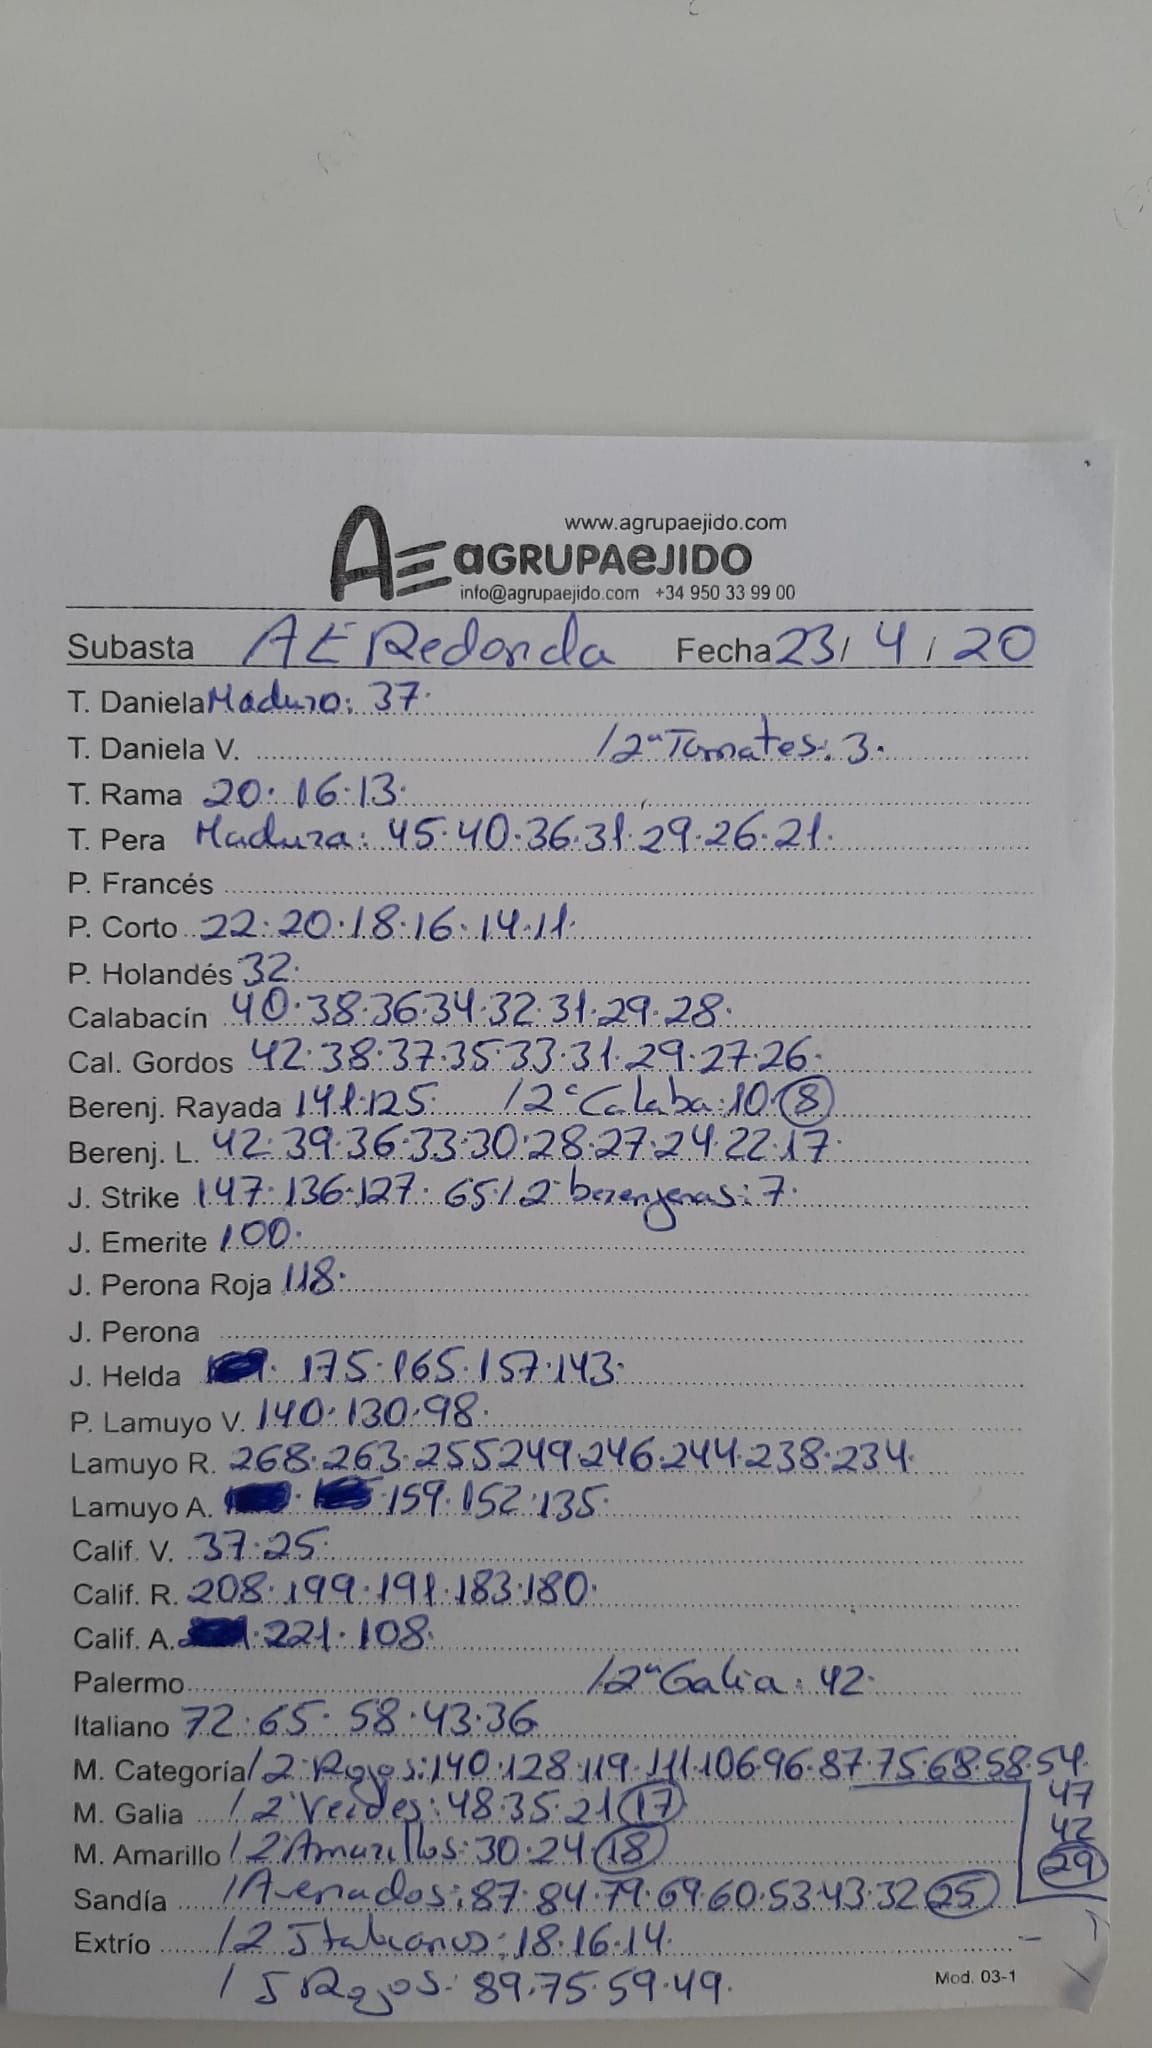 www.agrupaejido.com
AE aGRUPAeJIDO
info@agrupaejido.com +34 950 33 99 00
Subasta AE Redonda Fecha 23/4/20
T. Daniela Maduro: 37.
T. Daniela V. /2ª Tomates: 3.
T. Rama 20. 16. 13.
T. Pera Madura: 45. 40. 36. 31. 29. 26. 21.
P. Francés
P. Corto 22. 20. 18. 16. 14. 11.
P. Holandés 32.
Calabacín 40. 38. 36. 34. 32. 31. 29. 28.
Cal. Gordos 42. 38. 37. 35. 33. 31. 29. 27. 26.
Berenj. Rayada 141. 125. /2ª Calaba: 10. 8
Berenj. L. 42. 39. 36. 33. 30. 28. 27. 24. 22. 17.
J. Strike 147. 136. 127. 65 /2ª berenjenas: 7.
J. Emerite 100.
J. Perona Roja 118.
J. Perona
J. Helda 175. 165. 157. 143.
P. Lamuyo V. 140. 130. 98.
Lamuyo R. 268. 263. 255 249. 246. 244. 238. 234.
Lamuyo A. 159. 152. 135.
Calif. V. 37. 25.
Calif. R. 208. 199. 191. 183. 180.
Calif. A. 221. 108.
Palermo /2ª Galia: 42.
Italiano 72. 65. 58. 43. 36
M. Categoría /2ª Rojos: 140. 128. 119. 111. 106. 96. 87. 75. 68. 58. 54.
47
M. Galia /2ª Verdes: 48. 35. 21 17
42
M. Amarillo /2ª Amarillos: 30. 24 18
29
Sandía /Asenados: 87. 84. 79. 69. 60. 53. 43. 32 25
Extrío /2 Italianos: 18. 16. 14.
/5 Rojos: 89. 75. 59. 49.
Mod. 03-1